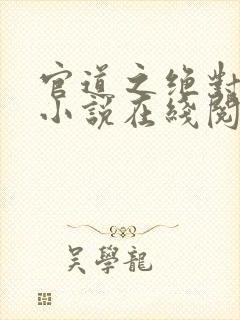 官道之绝對
小說在綫閱
吴學龍